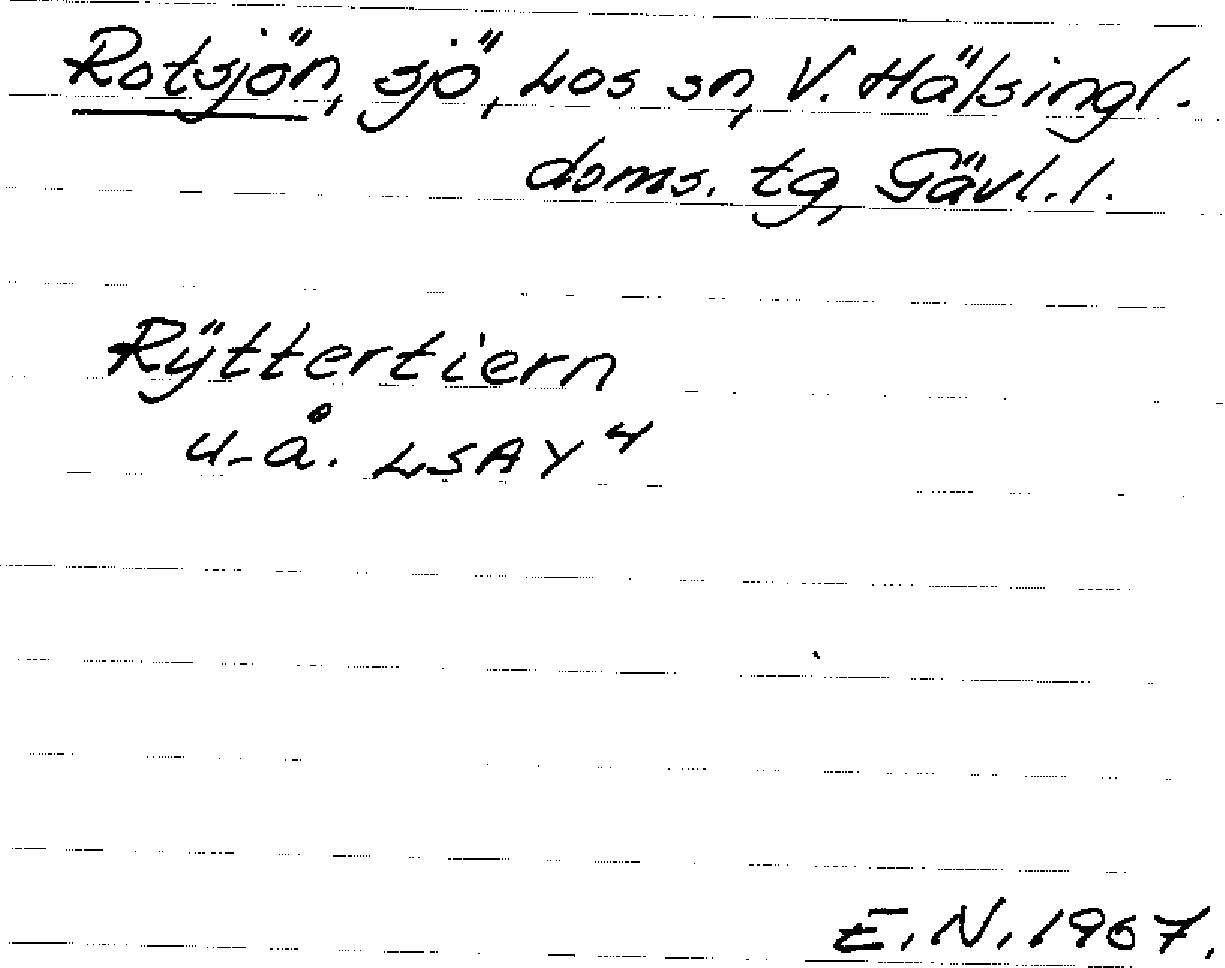 Rotsjön, sjö, Los sn, V. Hälsingl.
doms. tg, Gävl. l.
Rÿttertiern
u. å. LSA Y 4
E. N. 1967.